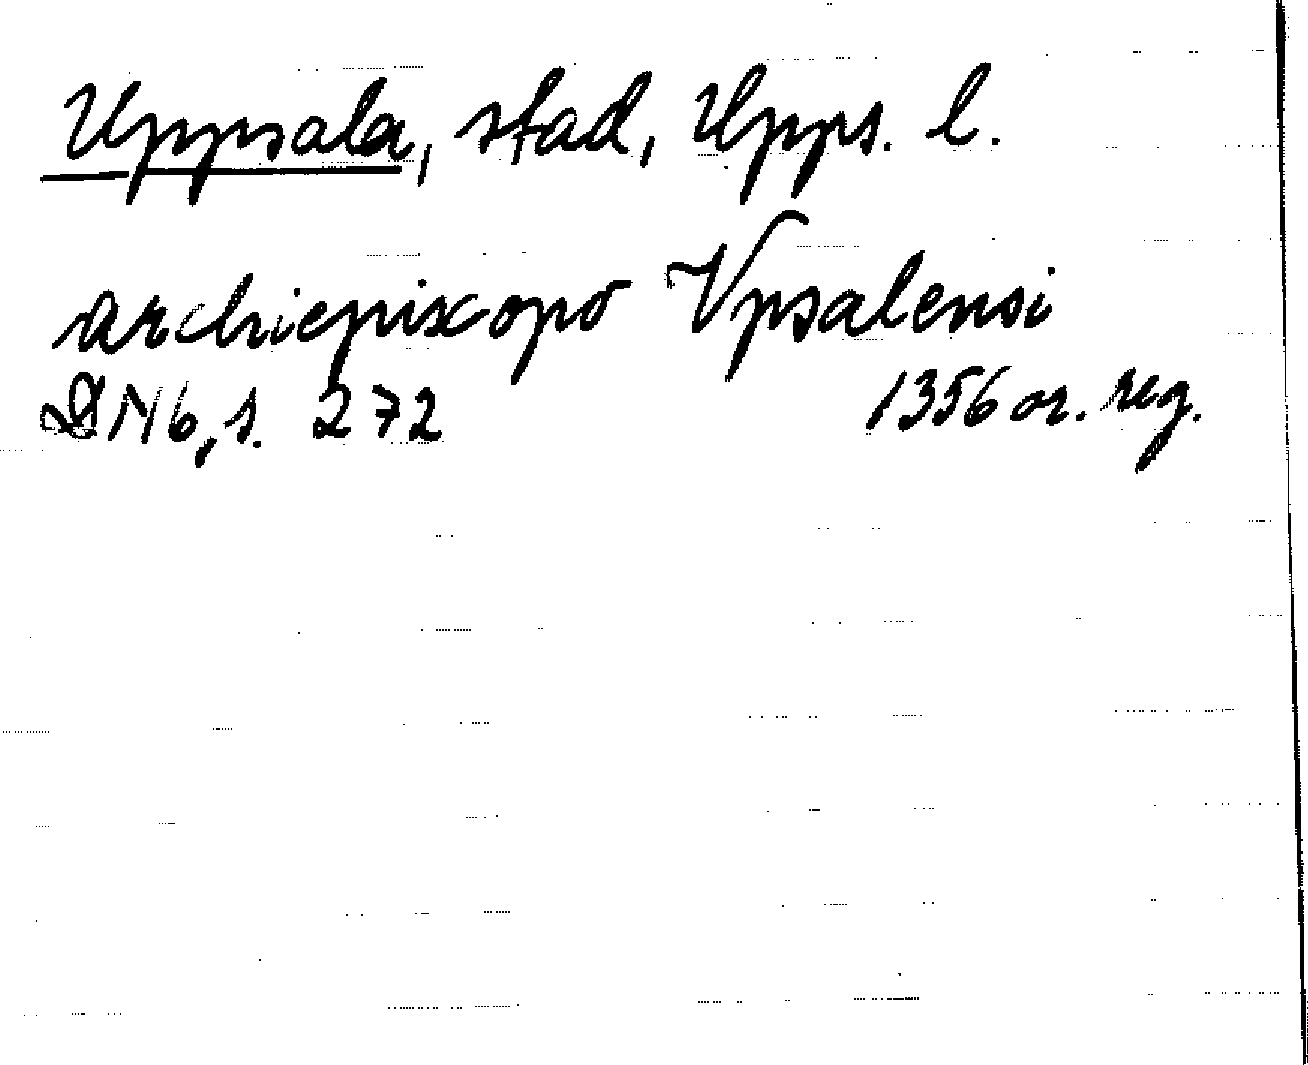 Uppsala, stad, Upps. l.
archiepiscopo Vpsalensi
DN 6, s. 272 1356 or. reg.